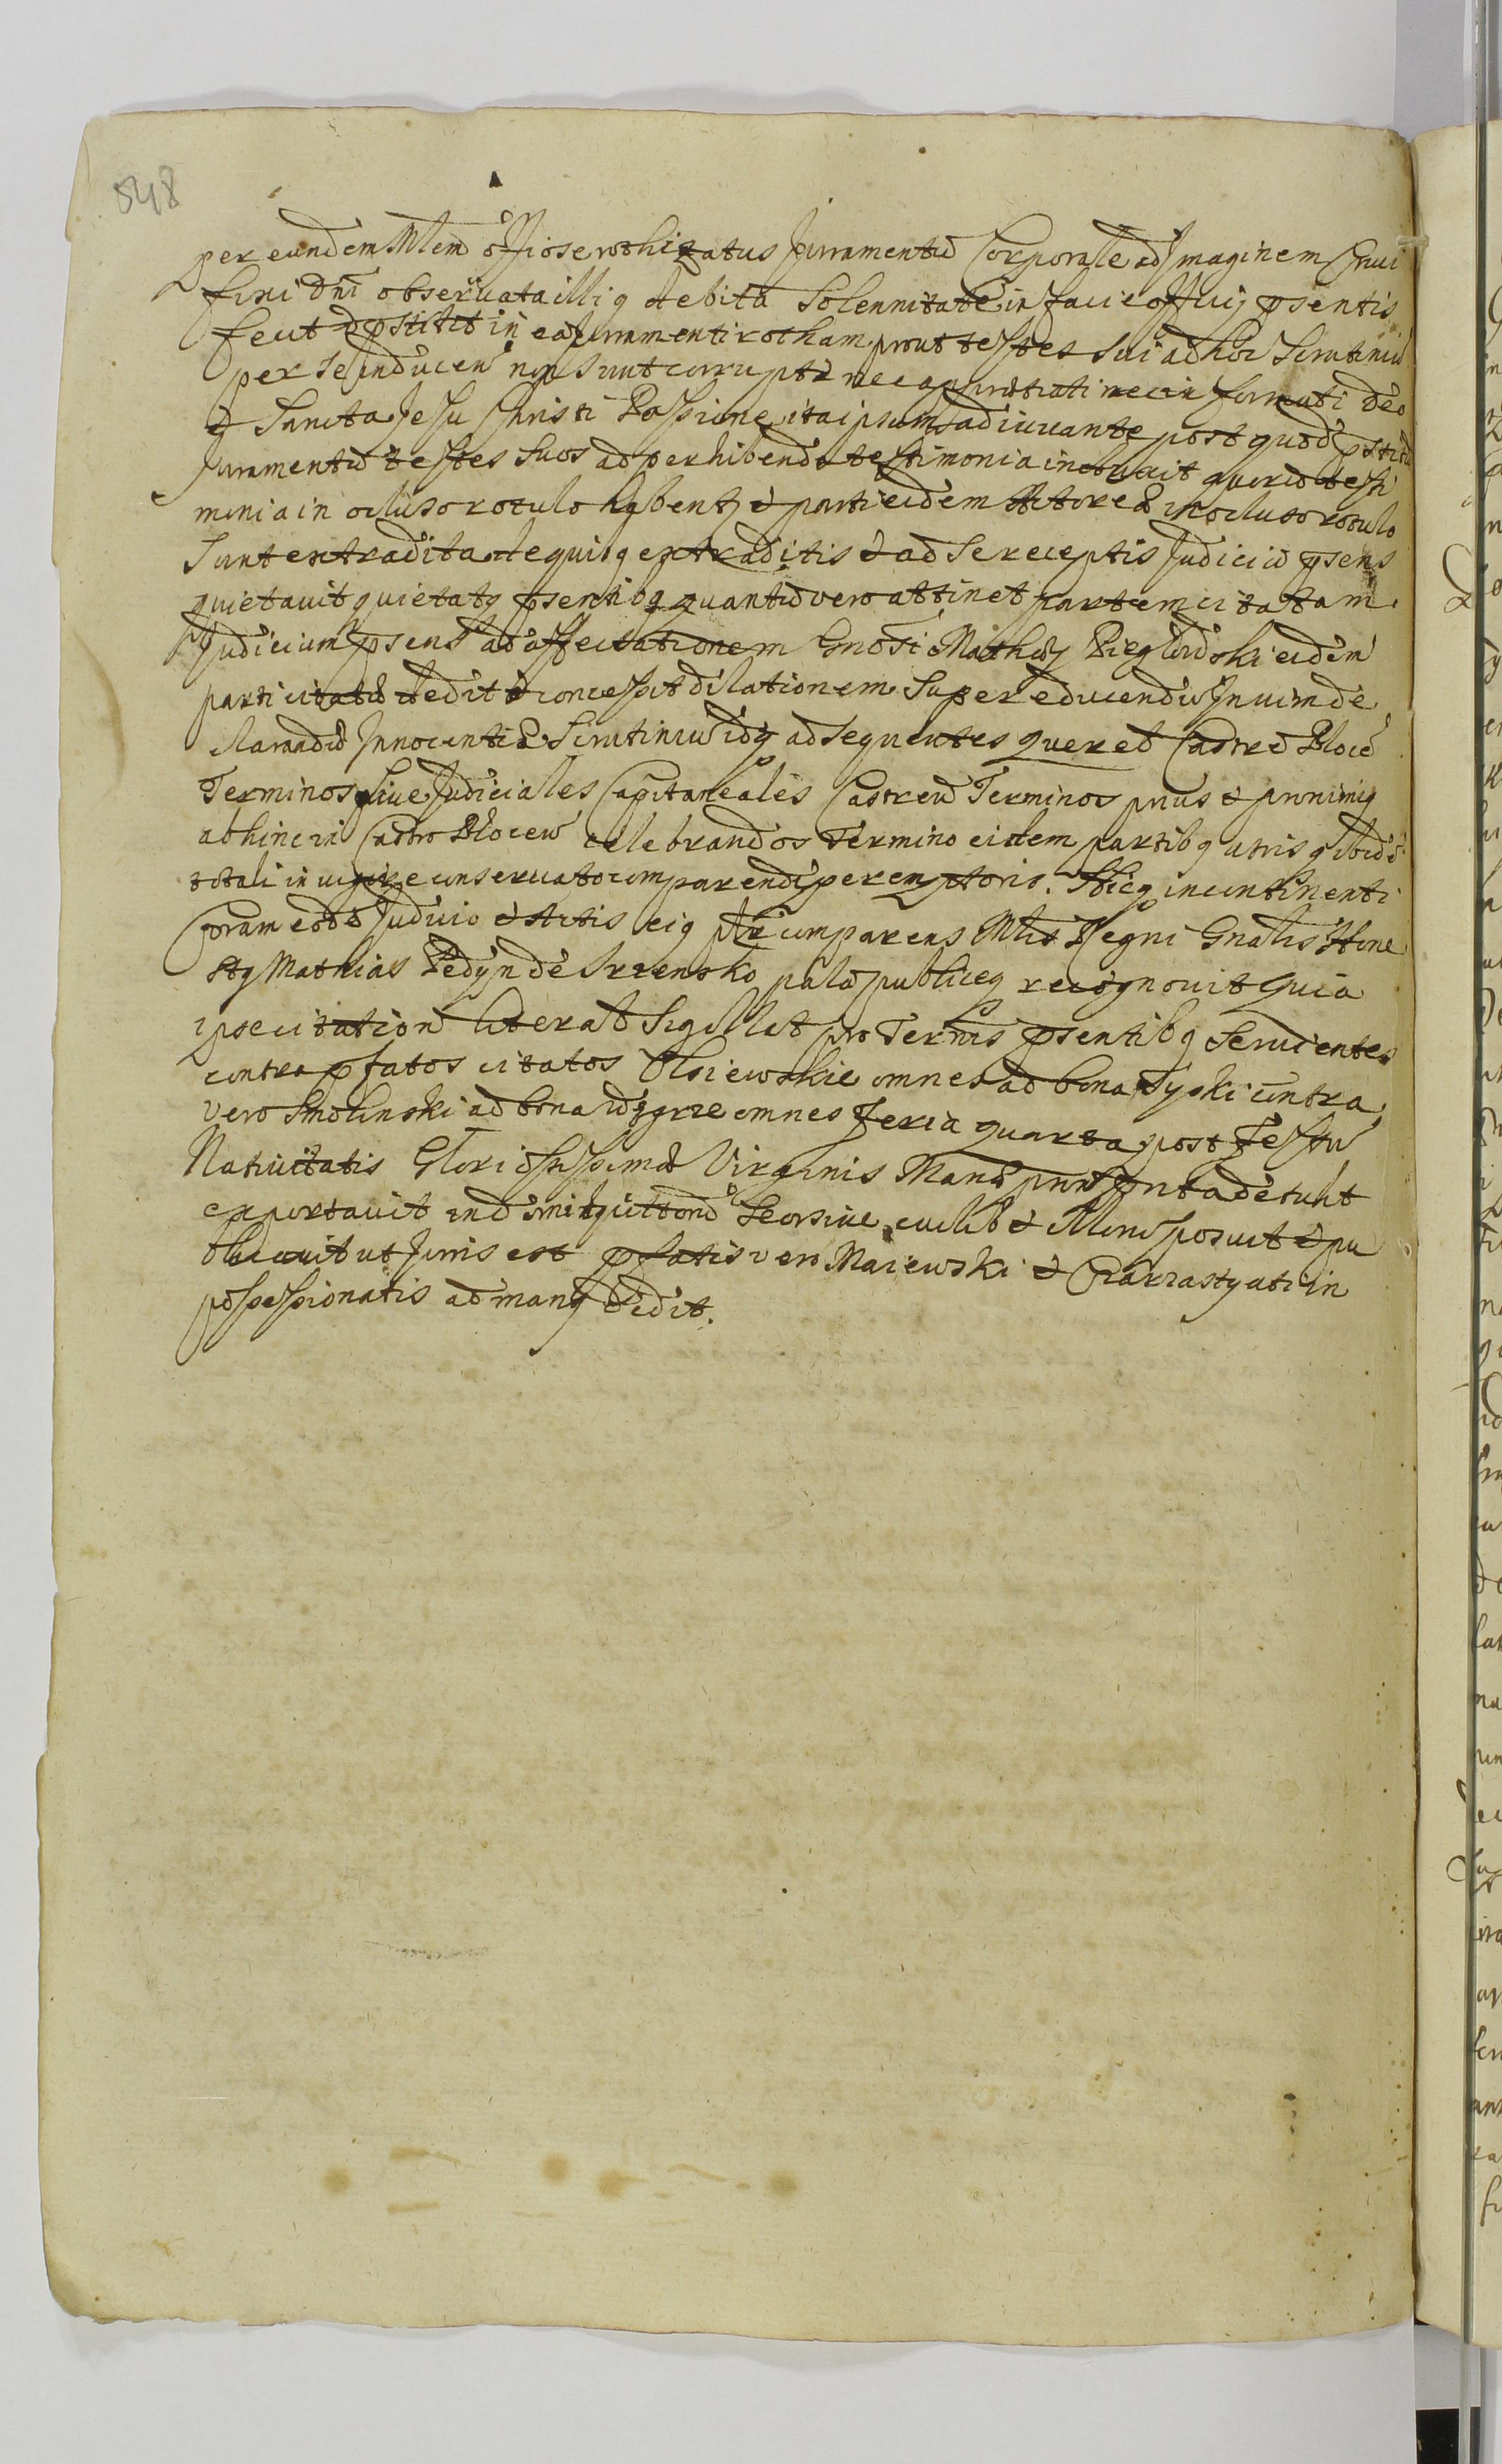 548
per eundem Mlem officiose rothizatus Juramentū Corporale ad Imaginem Cruci
fixi Dni observata illiq debita Solennitate in facie officij psentis
fecit & pstitit in ea Juramenti rotham prout testes sui ad hoc Scrutiniū
per se inducen non sunt corrupti nec apunctuati nec informati Deo
& Sancta Jesu Christi Passione ita ipsum adiuvante post quod pstitū
Juramentū testes suos ad perhibenda testimonia induxit quorū testi
monia in ocluso rotulo habentʒ & parti eidem Actorea in ocluso rotulo
Sunt extradita de quibq extraditis & ad se receptis Judiciū psens
quietavit quietatq psentibq quantū vero attinet partem citatam
Judicium psens ad affectationem Gnosi Mathiæ eidem
parti citatæ dedit & concessit dilationem Super educendū In vim de
clarandæ Innocentiæ Scrutiniū idq ad sequentes querel Castren Ploceñ
Terminos sive Judiciales Capitaneales Castren Terminos prius & proximiq
abhinc in Castro Plocen celebrandos Termino eidem partibq utrisq ibidē
totali in vigore conservato comparendi peremptorio. Hicq incontinenti
Coram eodē Judicio & Actis eiq psr comparens Mlis Regni Gnalis Hone
stq Mathias de Srzensko palā publiceq recognovit quia
ipse citation literat Sigillat pro Termis psentibq Servientes
contra pfatos citatos omnes ad bona Syski contra
vero Smolinski ad bona omnes Feria quarta post Festū
Nativitatis Gloriosissimæ Virginis Mariæ detulit
exportavit seorsive posuit & pu
blicavit ut Juris est pfatis vero Maiewski & uti in
possessionatis ad manq dedit.